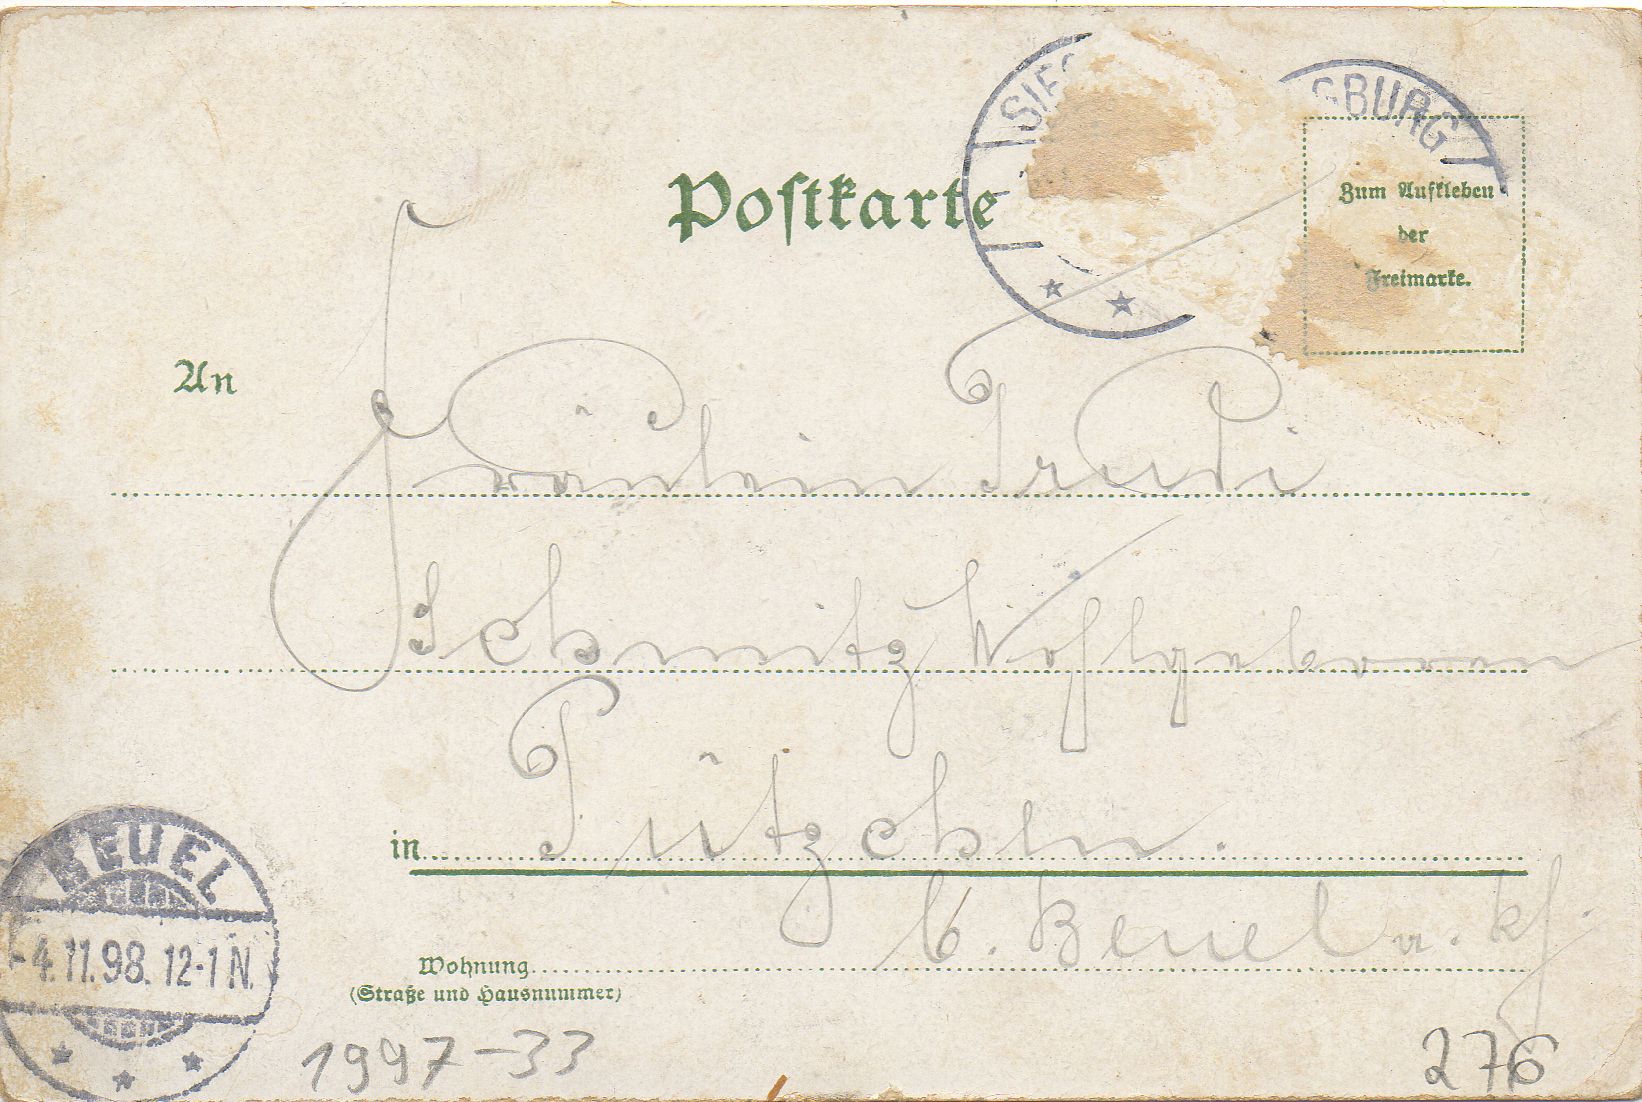 SIEG
GBURG
Postkarte
Zum Aufkleben
der
Freimarke.
An
Fräulein Trudi
Schmitz Wohlgeboren
in Pützchen.
b. Beuel a. Rh.
Wohnung
(Straße und Hausnummer)
BEUEL
-4.11.98. 12-1N.
1997-33
276